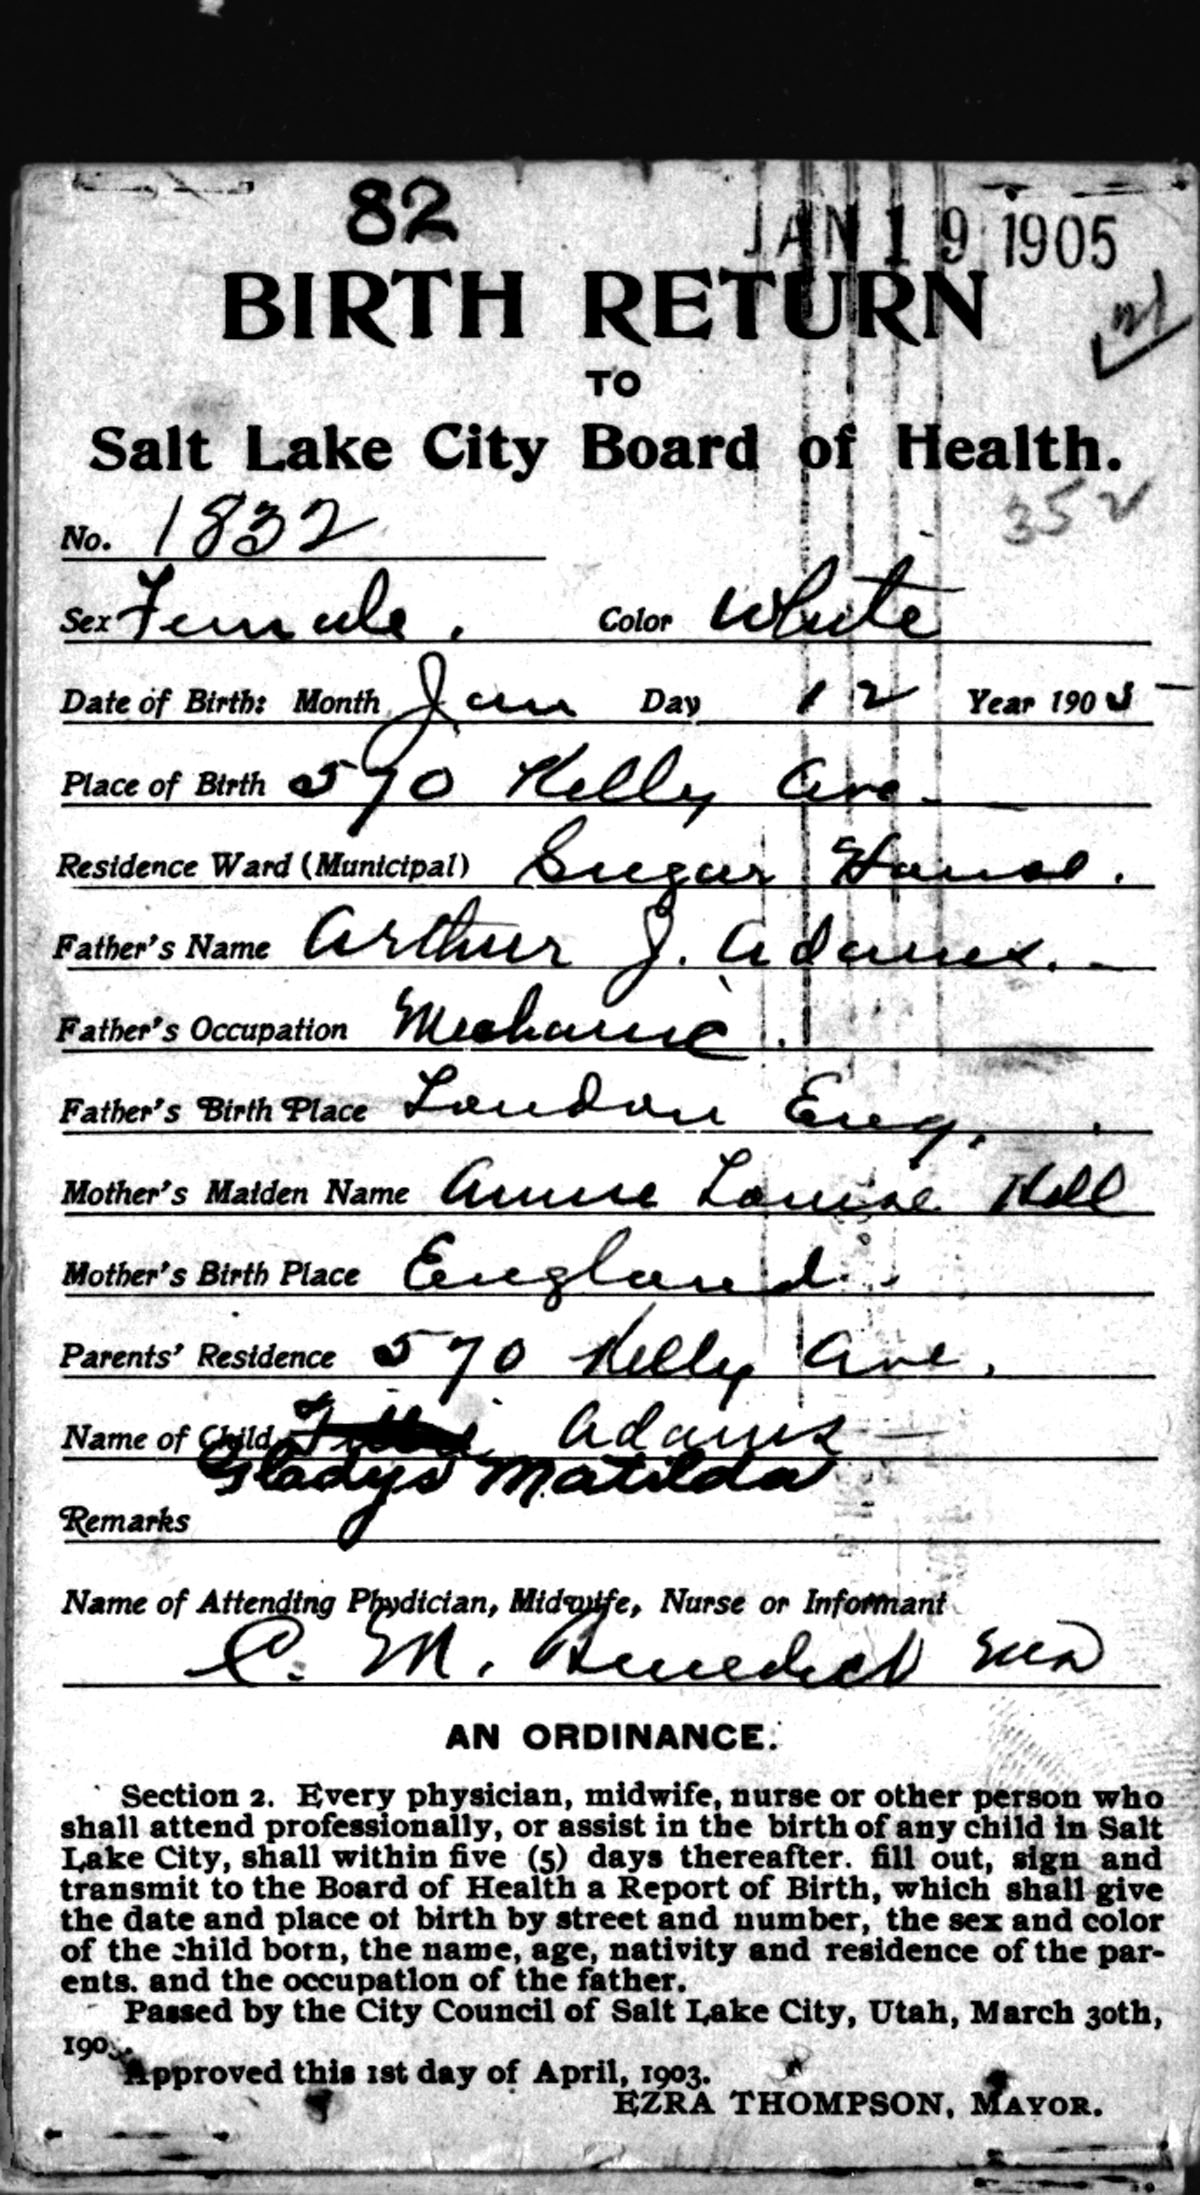 82 JAN 19 1905
BIRTH RETURN
TO
Salt Lake City Board of Health.
352
No. 1832
Sex Female. Color White
Date of Birth: Month Jan Day 12 Year 1905
Place of Birth 570 Kelly Ave.
Residence Ward (Municipal) Sugar House.
Father's Name Arthur J. Adams.
Father's Occupation Mechanic.
Father's Birth Place London Eng.
Mother's Maiden Name Annie Louise Hill
Mother's Birth Place England.
Parents' Residence 570 Kelly Ave.
Name of Child Adams
Gladys Matilda
Remarks
Name of Attending Phydician, Midwife, Nurse or Informant
C. M. Benedict MD
AN ORDINANCE.
Section 2. Every physician, midwife, nurse or other person who
shall attend professionally, or assist in the birth of any child in Salt
Lake City, shall within five (5) days thereafter. fill out, sign and
transmit to the Board of Health a Report of Birth, which shall give
the date and place of birth by street and number, the sex and color
of the child born, the name, age, nativity and residence of the par-
ents. and the occupation of the father.
Passed by the City Council of Salt Lake City, Utah, March 30th,
Approved this 1st day of April, 1903.
EZRA THOMPSON, MAYOR.